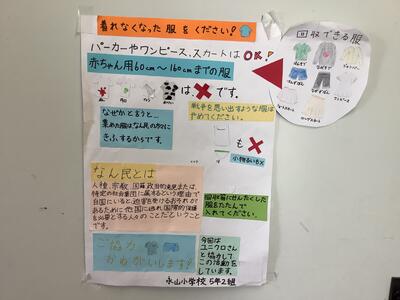 着れなくなった 服 を ください!
パーカーやワンピース、スカートは OK!
赤ちゃん用60cm〜160cmまでの服
は✖です。
なぜかと言うと…
集めた服はなん民の方々に
きふするからです。
戦争を思い出すような服は
やめてください。
も✖
小物るいも✖
なん民とは
人種、宗教、国籍、政治的意見または
特定の社会集団に属するという理由で
自国にいると、迫害を受けるおそれが
あるために他国に逃れ、国際的保護
を必要とする人々のことだということ
です。
回収前にせんたくした
服をたたんで
入れてください。
ご協力
おねがいします!
今回は
ユニクロさん
と協力して
この活動を
しています。
永山小学校 5年2組
回収できる服
ワンピース